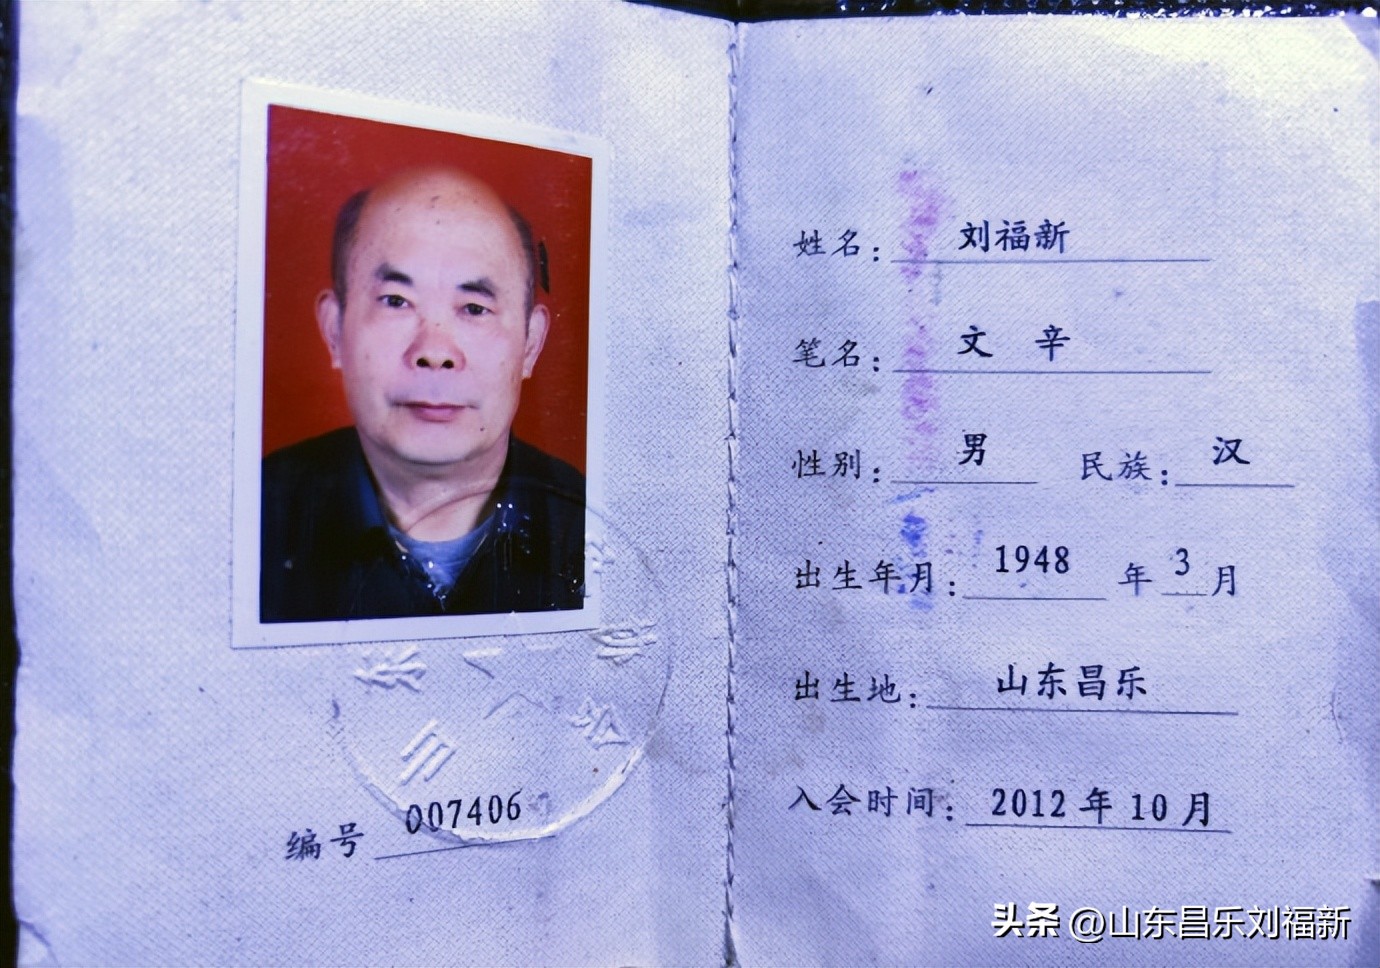 编号 007406
姓名: 刘福新
笔名: 文 辛
性别: 男 民族: 汉
出生年月: 1948 年 3 月
出生地: 山东昌乐
入会时间: 2012 年 10 月
头条 @山东昌乐刘福新